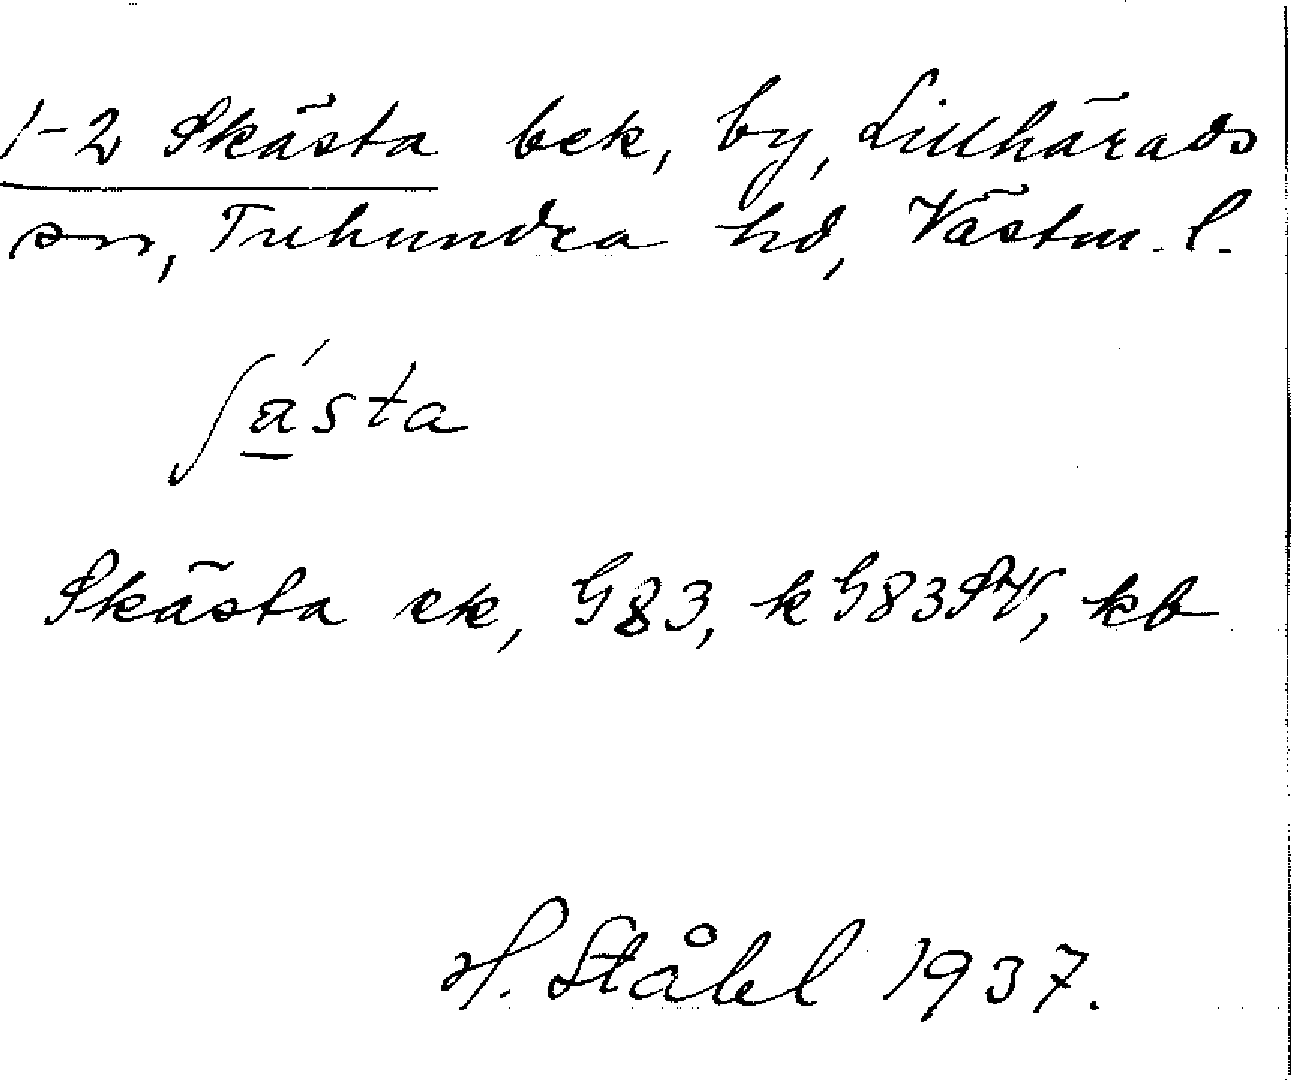 1-2 Skästa bek, by, Lillhärads
sn, Tuhundra hd, Västm. l.
ʃásta
Skästa ek, G83, k G83 SV, kb
H. Ståhl 1937.